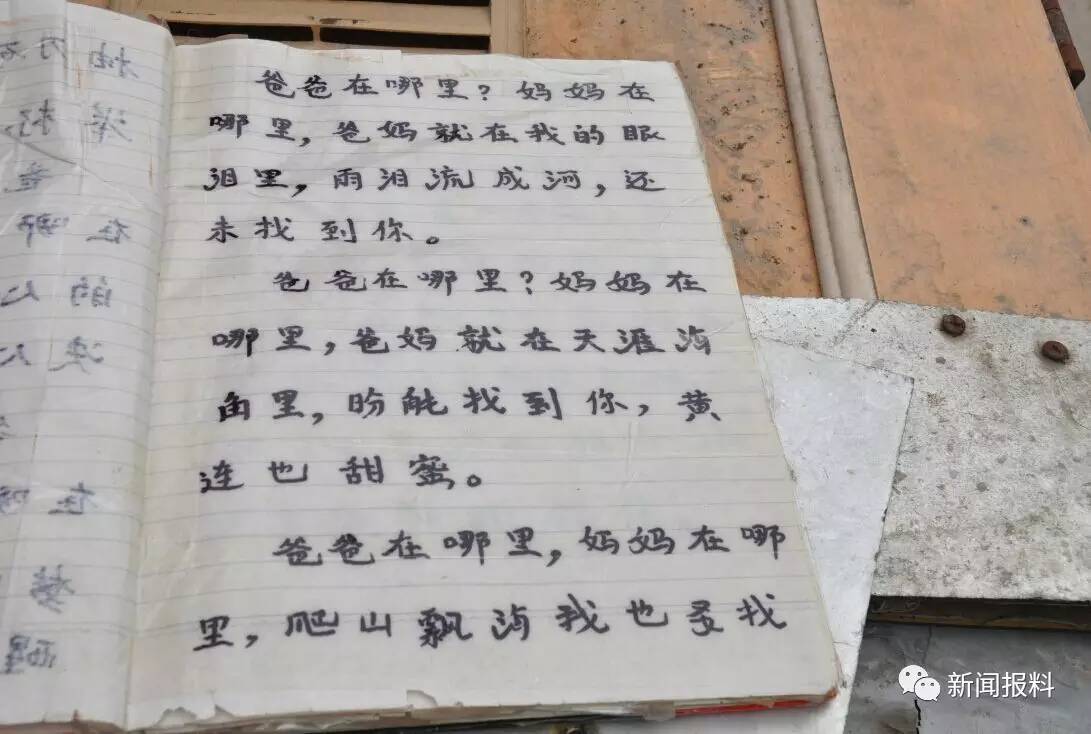 爸爸在哪里？妈妈在
哪里，爸妈就在我的眼
泪里，雨泪流成河，还
未找到你。
爸爸在哪里？妈妈在
哪里，爸妈就在天涯海
角里，盼能找到你，黄
连也甜蜜。
爸爸在哪里，妈妈在哪
里，爬山飘海我也要找
在哪
的人
在
梦
醒
新闻报料